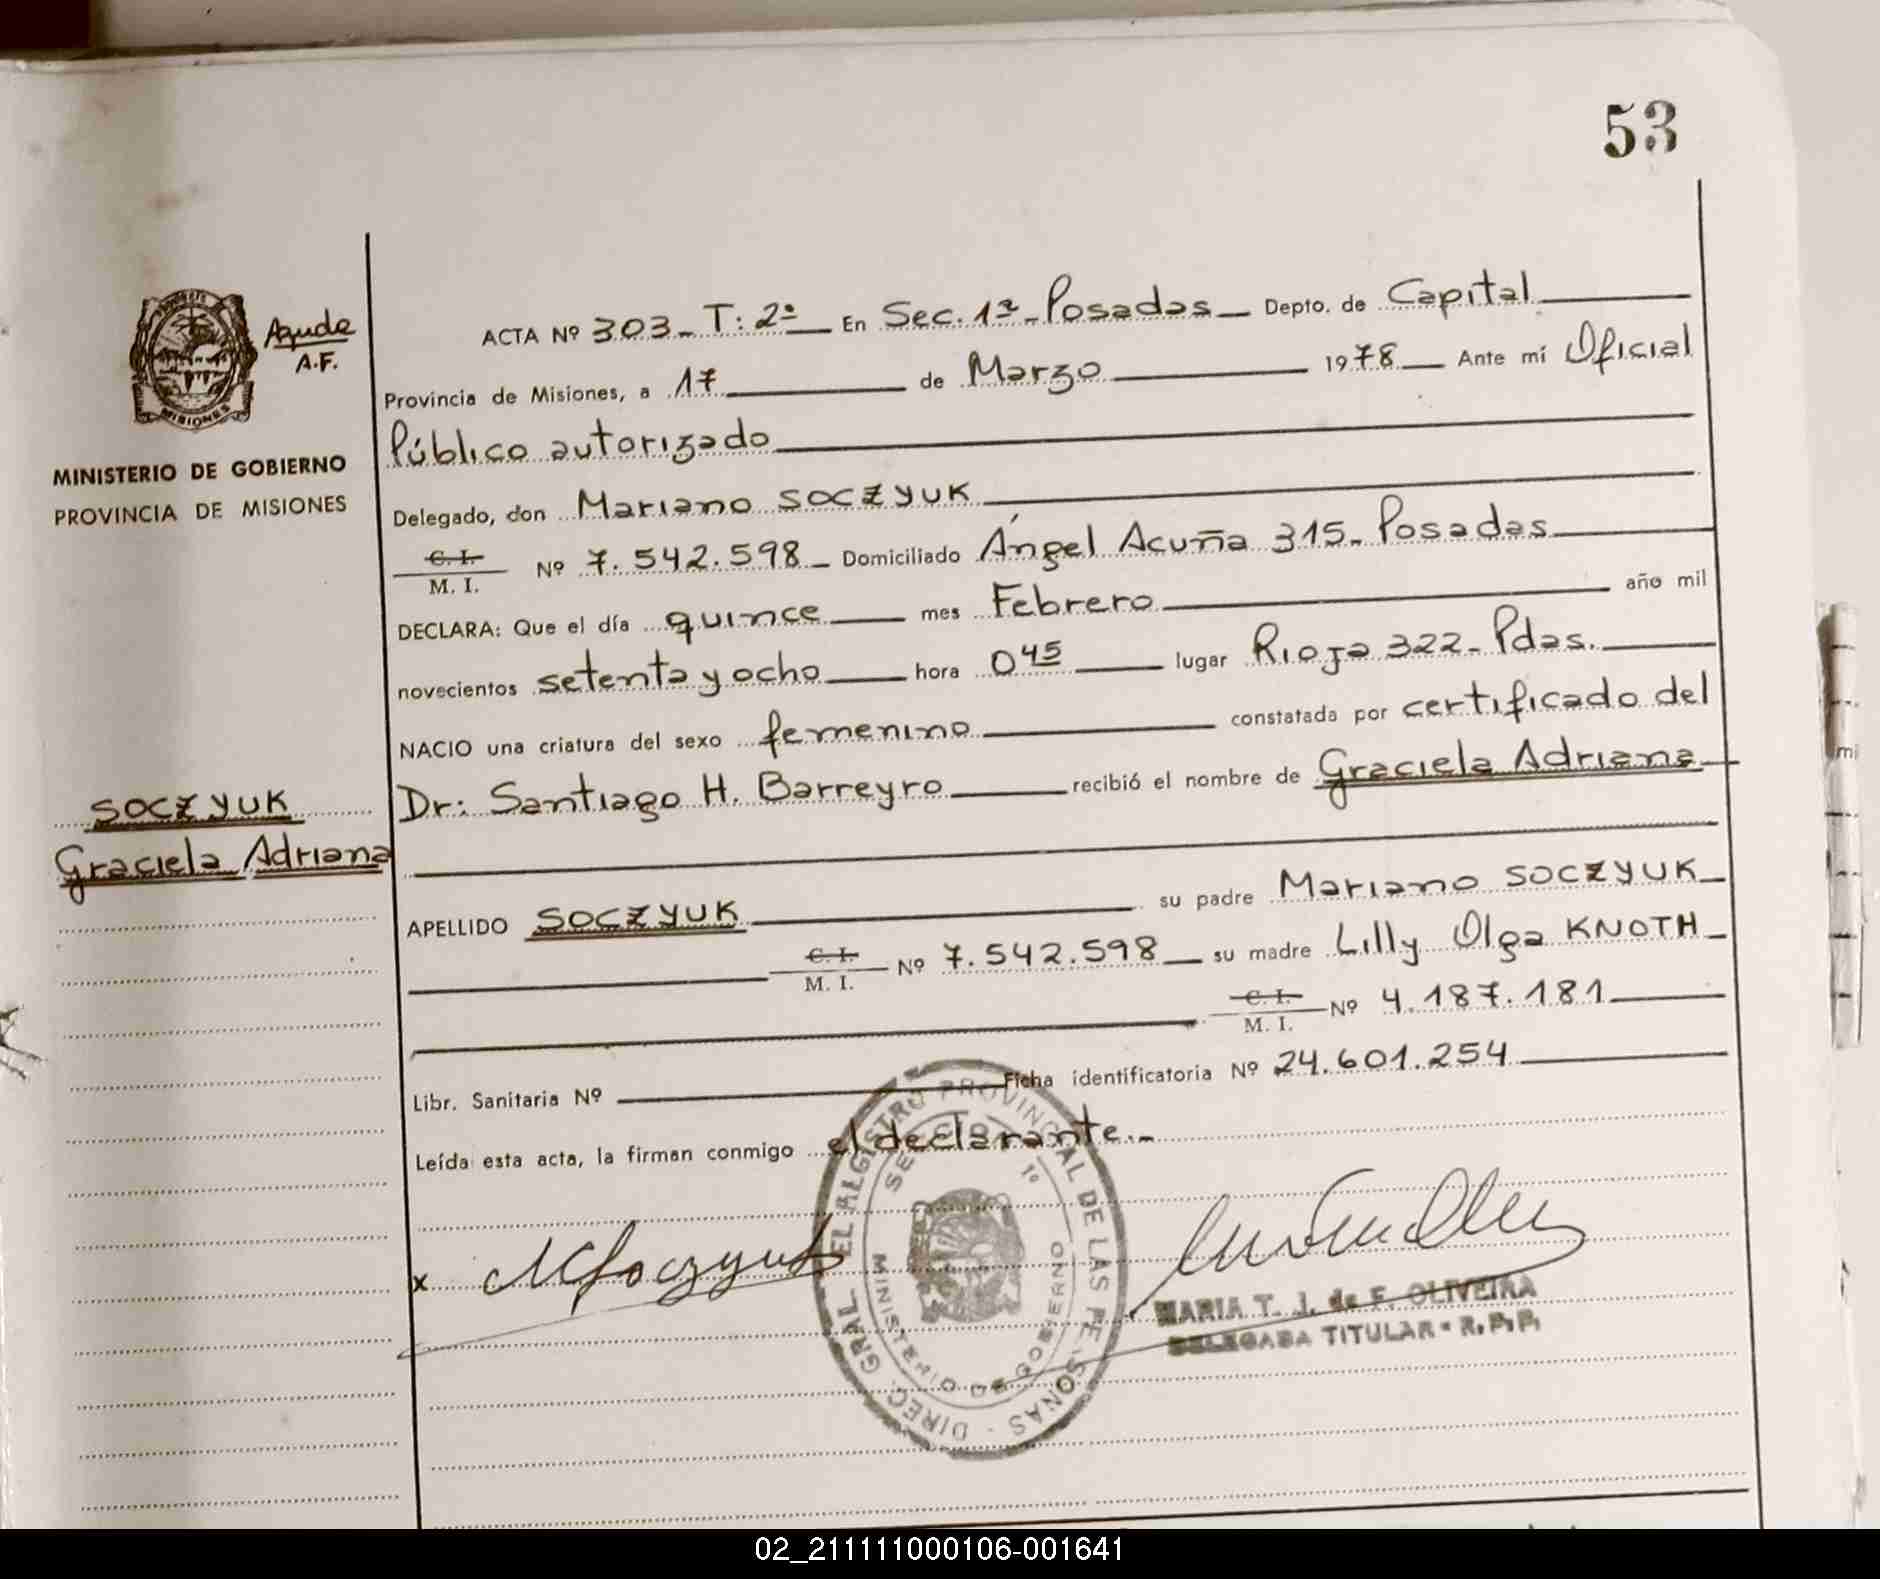 53
Aguda
A.F.
MISIONES
MINISTERIO DE GOBIERNO
PROVINCIA DE MISIONES
SOCZYUK
Graciela Adriana
ACTA Nº 303_ T: 2º En Sec. 1ª_Posadas_ Depto. de Capital
Provincia de Misiones, a 17 de Marzo 1978 Ante mí Oficial
Público autorizado
Delegado, don Mariano SOCZYUK
C. I.
M. I. Nº 7.542.598_ Domiciliado Ángel Acuña 315_ Posadas
DECLARA: Que el día quince mes Febrero año mil
novecientos setenta y ocho hora 0 45 lugar Rioja 322_ Pdas.
NACIO una criatura del sexo femenino constatada por certificado del
Dr: Santiago H. Barreyro recibió el nombre de Graciela Adriana
APELLIDO SOCZYUK su padre Mariano SOCZYUK_
C. I.
M. I. Nº 7.542.598_ su madre Lilly Olga KNOTH_
C. I.
M. I. Nº 4.187.181
Libr. Sanitaria Nº Ficha identificatoria Nº 24.601.254
Leída esta acta, la firman conmigo el declarante._
x MSoczyuk
MARIA T. J. de F. OLIVEIRA
DELEGADA TITULAR - R. P. P.
DIREC. GRAL. EL REGISTRO PROVINCIAL DE LAS PERSONAS
1º
MINISTERIO DE GOBIERNO
mi
02_211111000106-001641